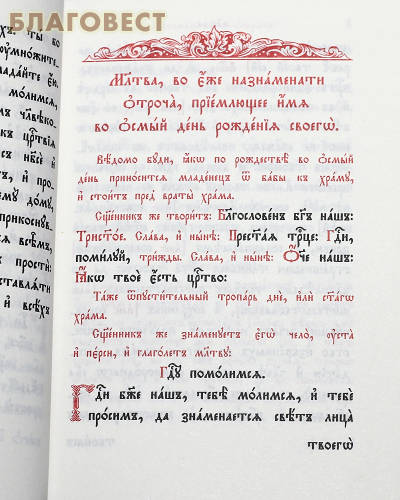 БЛАГОВЕСТ
Мл҃тва, во є҆́же назна́менати
ѻ҆́троча, прїе́млющее и҆́мѧ
во ѻ҆смы́й де́нь рожде́нїѧ своегѡ̀.
Вѣ́домо бꙋ́ди, ꙗ҆́кѡ по рождествѣ̀ во ѻ҆смы́й
де́нь прино́сится младе́нецъ ѿ ба́бы къ хра́мꙋ,
и҆ стои́тъ пред̾ враты̀ хра́ма.
Сщ҃е́нникъ же твори́тъ: Бл҃гослове́нъ бг҃ъ на́шъ:
Трист҃о́е. Сла́ва, и҆ ны́нѣ: Прест҃а́ѧ трⷪ҇це: Гдⷭ҇и,
поми́лꙋй, три́жды. Сла́ва, и҆ ны́нѣ: Ѻ҆́ч҃е на́шъ:
Ꙗ҆́кѡ твоѐ є҆́сть црⷭ҇тво:
Та́же ѿпꙋсти́тельный тропа́рь днѐ, и҆лѝ ст҃а́гѡ
хра́ма.
Сщ҃е́нникъ же зна́менꙋетъ є҆гѡ̀ чело̀, ᲂу҆ста̀
и҆ пе́рси, и҆ глаго́летъ мл҃твꙋ:
Гдⷭ҇ꙋ помо́лимсѧ.
Гдⷭ҇и бж҃е на́шъ, тебѣ̀ мо́лимсѧ, и҆ тебѐ
про́симъ, да зна́менаетсѧ свѣ́тъ лица̀
твоегѡ̀